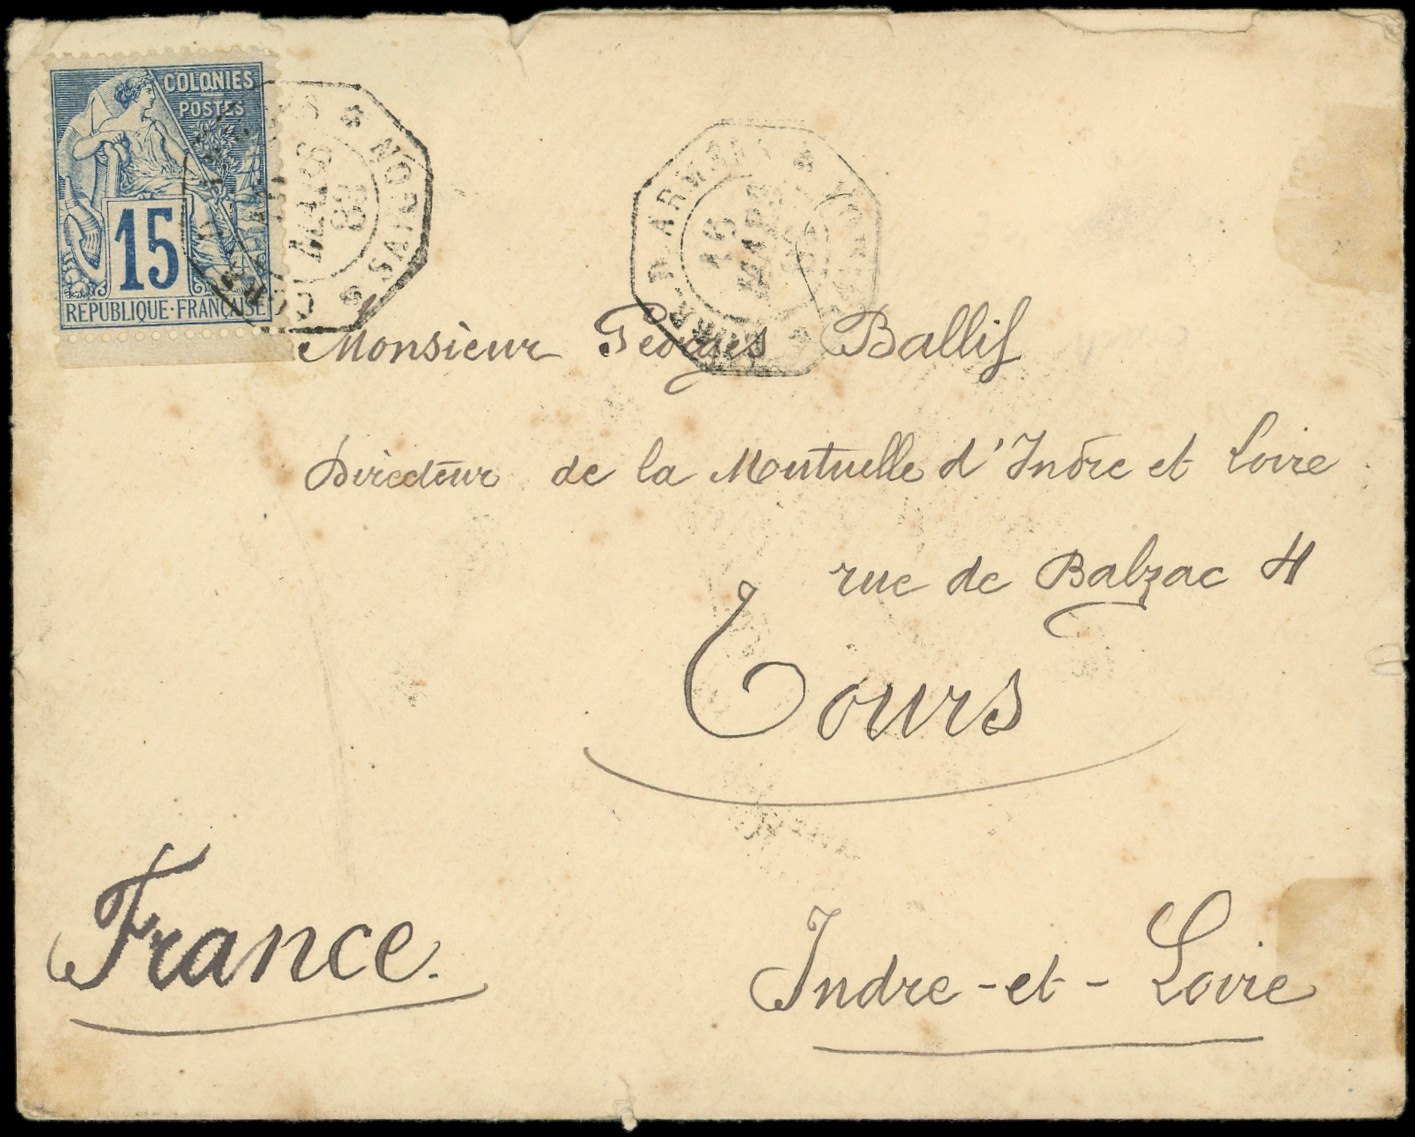 COLONIES
POSTES
15
REPUBLIQUE-FRANÇAISE
CORR. D. ARMÉES * NOR SAVS *
MARS
88
CORR. D. ARMÉES
15
MARS
Monsieur Georges Ballif
Directeur de la Mutuelle d'Indre et Loire
rue de Balzac 4
Tours
France.
Indre-et-Loire